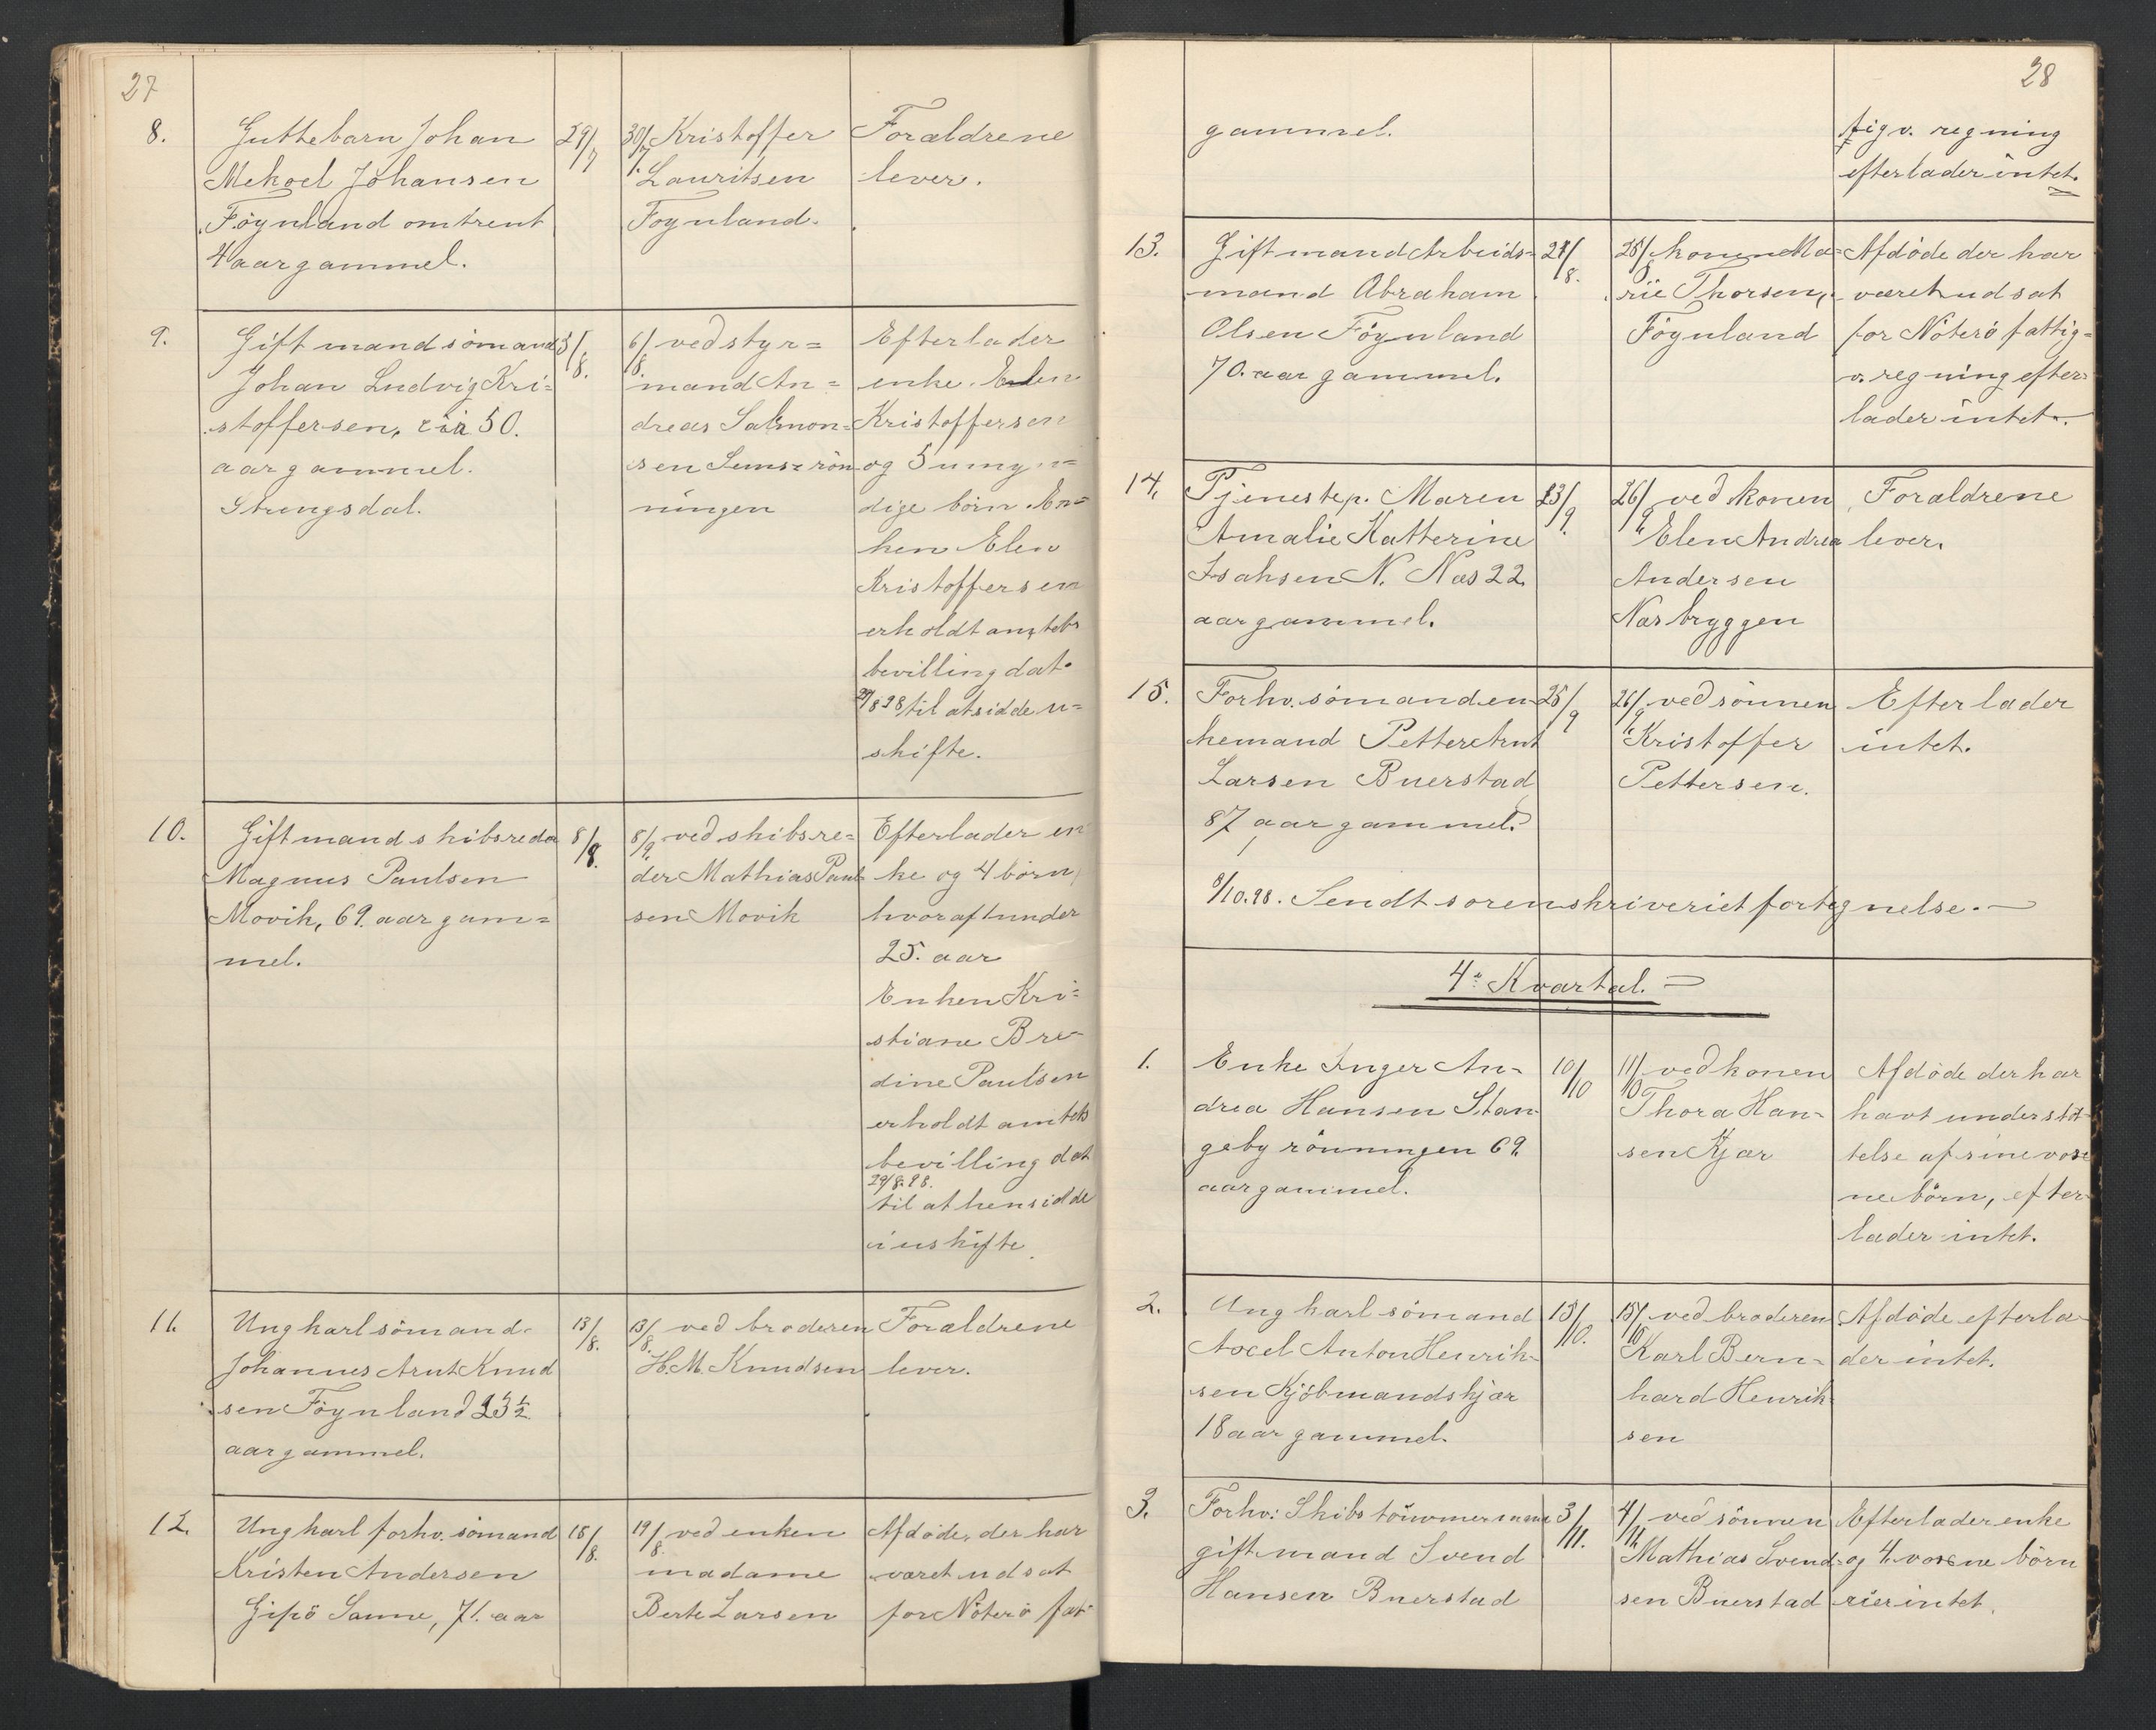 27
8.
Guttebarn Johan
Mekael Johansen
Föynland omtrent
4 aar gammel.
29/7
30/7 Kristoffer
Lauritsen
Föynland.
Forældrene
lever.
9.
Gift mand sömand
Johan Ludvig Kri=
stoffersen, cir 50.
aar gammel.
Strengsdal.
3/8.
6/8. ved styr=
mand An=
dreas Salmon=
sen Semsrön
ningen
Efterlader
enke. Elen
Kristoffersen
og 5 umyn=
dige börn. En=
ken Elen
Kristoffersen
erholdt amtets
bevilling dat.
29/8 98 til at sidde u=
skifte.
10.
Gift mand skibsreder
Magnus Paulsen
Movik, 69. aar gam=
mel.
8/8.
8/9. ved skibsre=
der Mathias Paul
sen Movik
Efterlader en
ke og 4 börn
hvoraf 1 under
25. aar
Enken Kri=
stiane Bre-
dine Paulsen
erholdt amtets
bevilling dat
29/8. 98.
til at hensidde
i uskifte
11.
Ungkarl sömand
Johannes Arnt Knud
sen Föynland 23 1/2
aar gammel.
13/8.
13/8. ved broderen
H. M. Knudsen
Forældrene
lever.
12.
Ungkarl forhv. sömand
Kristen Andersen
Gipö Sanne, 71. aar
18/8.
19/8. ved enken
madame
Berte Larsen
Afdöde, der har
været udsat
for Nöterö fat-
28
gammel.
tigv. regning
efterlader intet.
13.
Gift mand Arbeids=
mand Abraham
Olsen Föynland
70. aar gammel.
24/8.
25/8 konen Ma=
rie Thorsen,
Föynland
Afdöde der har
været udsat
for Nöterö fattig=
v. regning efter=
lader intet.
14.
Tjenestep. Maren
Amalie Katterine
Isaksen N. Næs 22
aar gammel.
23/9.
26/9. ved konen
Elen Andrea
Andersen
Næsbryggen
Forældrene
lever.
15.
Forhv. sömand en-
kemand Petter Arnt
Larsen Buerstad
87 aar gammel.
25/9
26/9. ved sönnen
Kristoffer
Pettersen.
Efterlader
intet.
8/10. 98. Sendt sorenskriveriet fortegnelse.
4de Kvartal.
1.
Enke Inger An-
drea Hansen Stan-
gebyrönningen 69.
aar gammel.
10/10
11/10 ved konen
Thora Han-
sen Kjær
Afdöde der har
havt understöt-
telse af sine voxe
ne börn, efter-
lader intet.
2.
Ungkarl sömand
Axel Anton Henrik-
sen Kjöbmandskjær
18 aar gammel.
15/10.
15/10 ved broderen
Karl Bern=
hard Henrik-
sen
Afdöde efterla-
der intet.
3.
Forhv: Skibstömmermand
gift mand Svend
Hansen Buerstad
3/11.
4/11. ved sönnen
Mathias Svend-
sen Buerstad
Efterlader enke
og 4 voxne börn
eier intet.